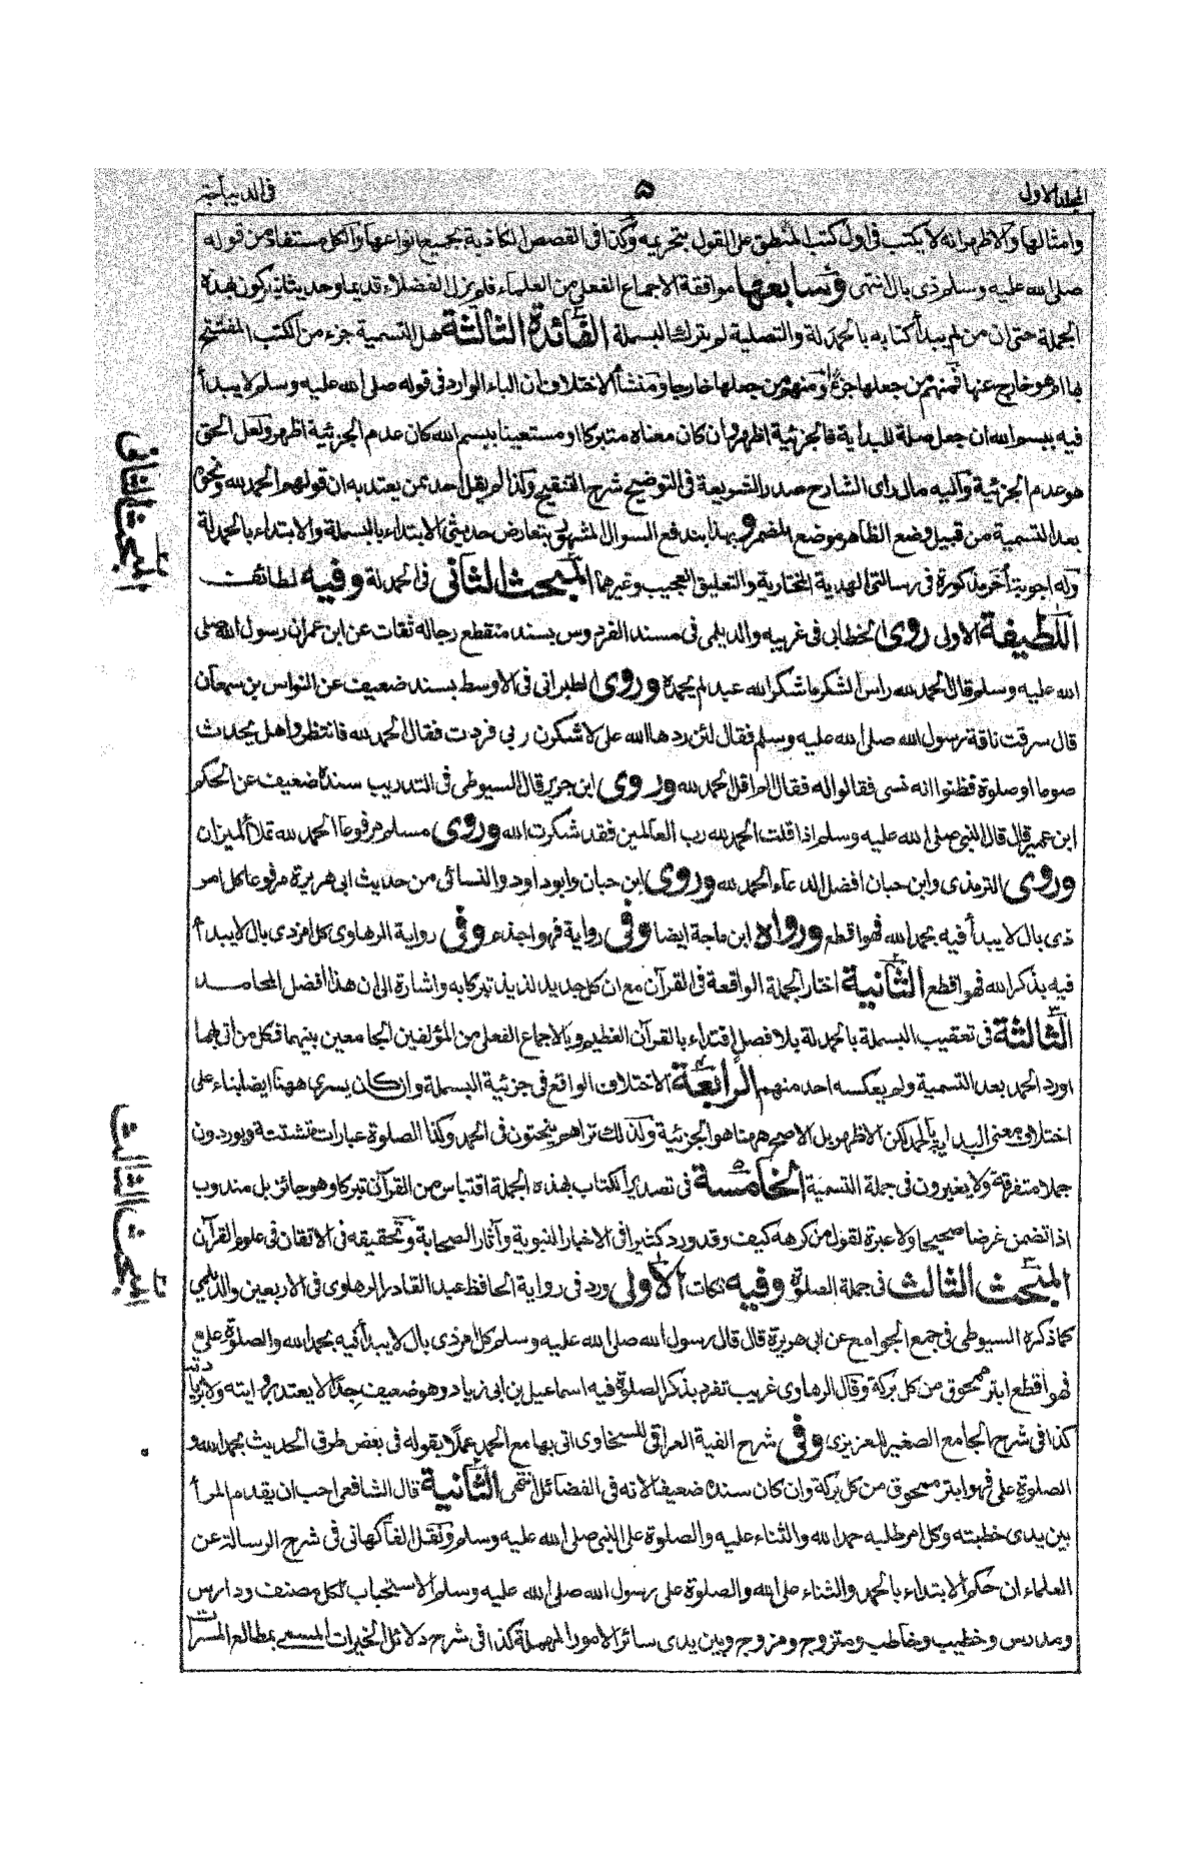 المجلد الاول
۵
فى الديباجة
وامثالها والاظهر انه لا يكتب فى اول كتب المنطق على القول بتحريمه وكذا فى القصص الكاذبة بجميع انواعها والكل مستفاد من قوله
صلى الله عليه وسلم ذى بال انتهى وسابعها موافقة الاجماع الفعلى من العلماء فلم يزل الفضلاء قديما وحديثا يتبركون بهذه
الجملة حتى ان من لم يبدأ كتابه بالحمدلة والتصلية لم يترك البسملة الفائدة الثالثة هل التسمية جزء من الكتب المفتتح
بها او هو خارج عنها فمنهم من جعلها جزءً ومنهم من جعلها خارجا ومنشأ الاختلاف ان الباء الوارد فى قوله صلى الله عليه وسلم لا يبدأ
فيه ببسم الله ان جعل صلة للبداية فالجزئية اظهر وان كان معناه متبركا او مستعينا ببسم الله كان عدم الجزئية اظهر ولعل الحق
هو عدم الجزئية واليه مال راى الشارح صدر الشريعة فى التوضيح شرح التنقيح وكذا لم يقل احد ممن يعتد به ان قولهم الحمد لله ونحوه
بعد التسمية من قبيل وضع الظاهر موضع المضمر وبهذا يندفع السوال المشهور بتعارض حديثى الابتداء بالبسملة والابتداء بالحمدلة
وله اجوبة أخر مذكورة فى رسالتى الهدية المختارية والتعليق العجيب وغيرهما المبحث الثانى فى الحمدلة وفيه لطائف
اللطيفة الاولى روى الخطابى فى غريبه والديلمى فى مسند الفردوس بسند منقطع رجاله ثقات عن ابن عمر ان رسول الله صلى
الله عليه وسلم قال الحمد لله راس الشكر ما شكر الله عبد لم يحمده وروى الطبرانى فى الاوسط بسند ضعيف عن النواس بن سمعان
قال سرقت ناقة رسول الله صلى الله عليه وسلم فقال لئن ردها الله على لاشكرن ربى فردت فقال الحمد لله فانتظروا هل يحدث
صوما او صلوة فظنوا انه نسى فقالوا له فقال الم اقل الحمد لله وروى ابن جرير قال السيوطى فى التدريب سنده ضعيف عن الحكم
ابن عمير قال قال النبى صلى الله عليه وسلم اذا قلت الحمد لله رب العالمين فقد شكرت الله وروى مسلم مرفوعا الحمد لله تملأ الميزان
وروى الترمذى وابن حبان افضل الدعاء الحمد لله وروى ابن حبان وابو داود والنسائى من حديث ابى هريرة مرفوعا كل امر
ذى بال لا يبدأ فيه بحمد الله فهو اقطع ورواه ابن ماجة ايضا وفى رواية فهو اجذم وفى رواية الرهاوى كل امر ذى بال لا يبدأ
فيه بذكر الله فهو اقطع الثانية اختار الجملة الواقعة فى القرآن مع ان كل جديد لذيذ تبركا به واشارة الى ان هذا افضل المحامد
الثالثة فى تعقيب البسملة بالحمدلة بلا فصل اقتداء بالقرآن العظيم وبالاجماع الفعلى من المؤلفين الجامعين بينهما فكل من اتى بهما
اورد الحمد بعد التسمية ولم يعكسه احد منهم الرابعة الاختلاف الواقع فى جزئية البسملة وان كان يسرى ههنا ايضا بناء على
اختلاف معنى البداية بالحمد لكن الاظهر بل الاصح ههنا هو الجزئية ولذلك تراهم ينحتون فى الحمد وكذا الصلوة عبارات متشتتة ويوردون
جملا متفرقة ولا يغيرون فى جملة التسمية الخامسة فى تصدير الكتاب بهذه الجملة اقتباس من القرآن تبركا وهو جائز بل مندوب
اذا تضمن غرضا صحيحا ولا عبرة لقول من كرهه كيف وقد ورد كثيرا فى الاخبار النبوية وآثار الصحابة وتحقيقه فى الاتقان فى علوم القرآن
المبحث الثالث فى جملة الصلوة وفيه نكات الاولى ورد فى رواية الحافظ عبد القادر الرهاوى فى الاربعين والديلمى
كما ذكره السيوطى فى جمع الجوامع عن ابى هريرة قال قال رسول الله صلى الله عليه وسلم كل امر ذى بال لا يبدأ فيه بحمد الله والصلوة على
فهو اقطع ابتر ممحوق من كل بركة وقال الرهاوى غريب تفرد بذكر الصلوة فيه اسماعيل بن ابى زياد وهو ضعيف جدًا لا يعتد بروايته ولا بزيادته
كذا فى شرح الجامع الصغير للعزيزى وفى شرح الفية العراقى للسخاوى اتى بها مع الحمد عملًا بقوله فى بعض طرق الحديث بحمد الله و
الصلوة على فهو ابتر ممحوق من كل بركة وان كان سنده ضعيفا لانه فى الفضائل انتهى الثانية قال الشافعى احب ان يقدم المرأ
بين يدى خطبته وكل امر طلبه حمد الله والثناء عليه والصلوة على النبى صلى الله عليه وسلم ونقل الفاكهانى فى شرح الرسالة عن
العلماء ان حكم الابتداء بالحمد والثناء على الله والصلوة على رسول الله صلى الله عليه وسلم الاستحباب لكل مصنف ودارس
ومدرس وخطيب وخاطب ومتزوج ومزوج وبين يدى سائر الامور المهمة كذا فى شرح دلائل الخيرات المسمى بمطالع المسرات
المبحث الثانى
المبحث الثالث